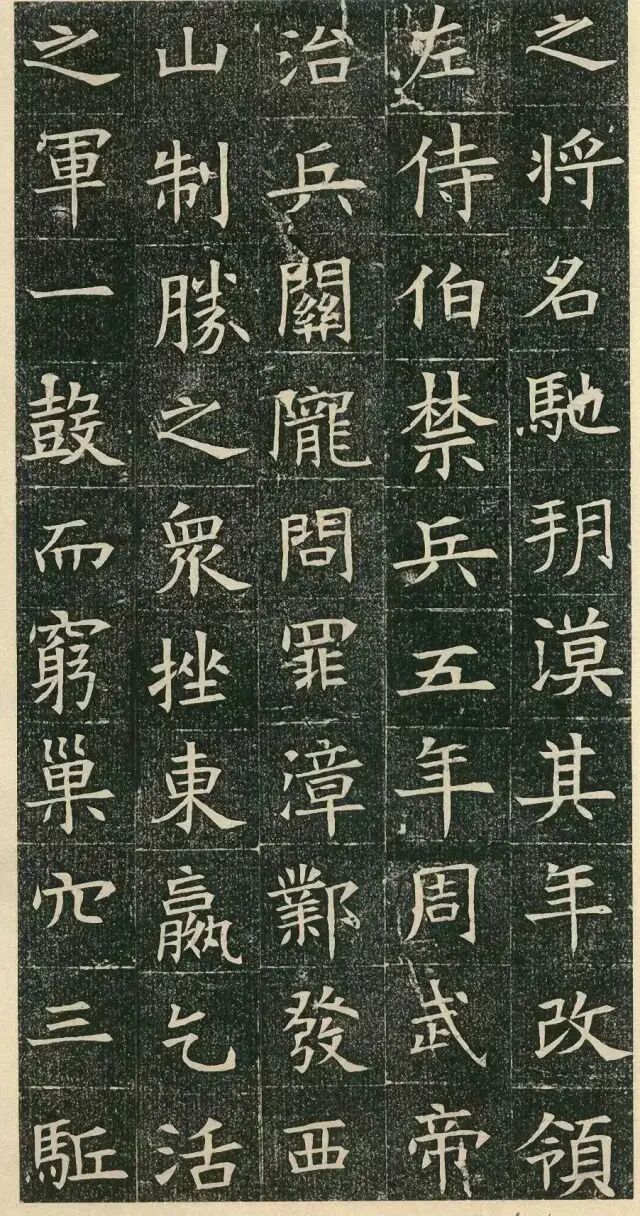 之将名馳玥漠其年改領
左侍伯禁兵五年周武帝
治兵關隴問罪漳鄴發西
山制勝之眾挫東嬴乞活
之軍一鼓而窮巢穴三駈